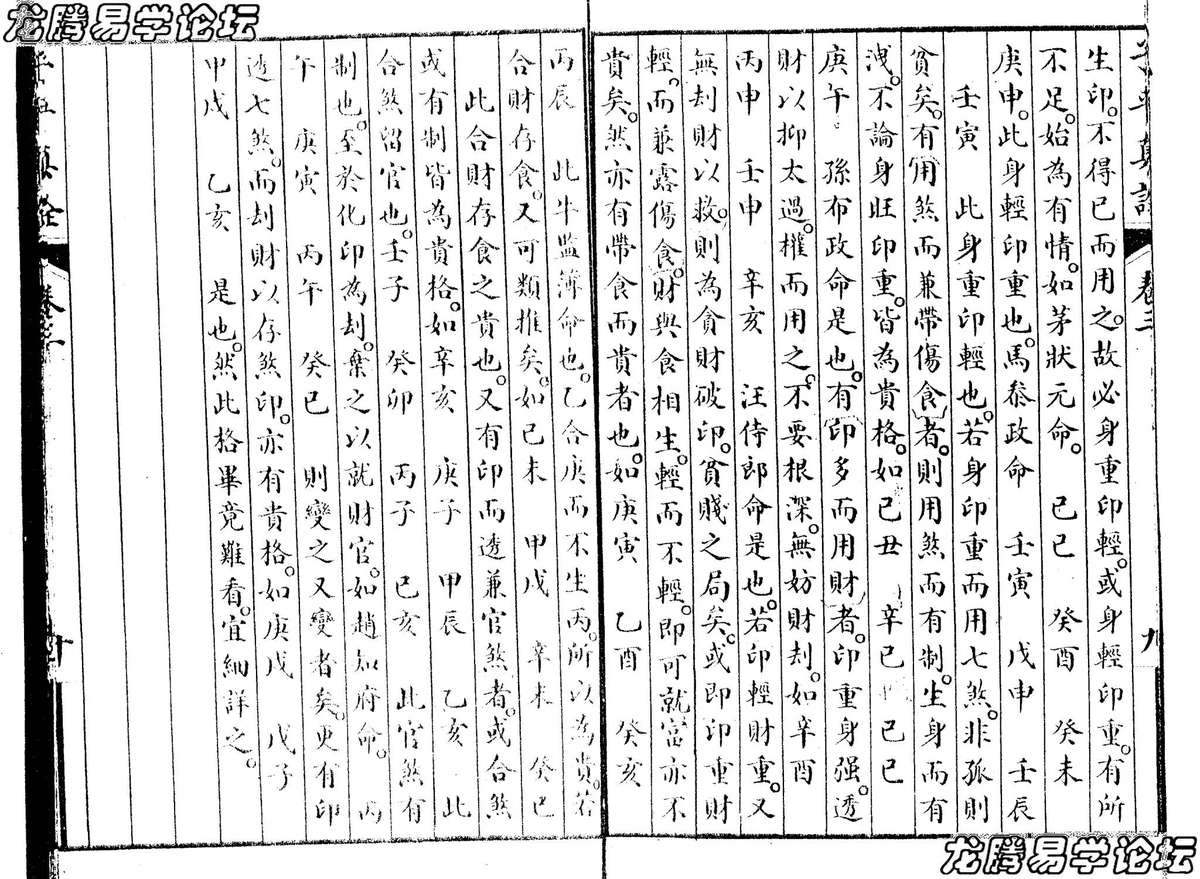 龙腾易学论坛
子平真詮 卷三 九
生印。不得已而用之。故必身重印輕。或身輕印重。有所
不足。始為有情。如茅狀元命。 己巳 癸酉 癸未
庚申。此身輕印重也。馬叅政命 壬寅 戊申 壬辰
壬寅 此身重印輕也。若身印重而用七煞。非孤則
貧矣。有用煞而兼帶傷食者。則用煞而有制。生身而有
洩。不論身旺印重。皆為貴格。如己丑 辛巳 己巳
庚午 孫布政命是也。有印多而用財者。印重身强。透
財以抑太過。權而用之。不要根深。無妨財刦。如辛酉
丙申 壬申 辛亥 汪侍郎命是也。若印輕財重。又
無刦財以救。則為貪財破印。貧賤之局矣。或即印重財
輕。而兼露傷食。財與食相生。輕而不輕。即可就富亦不
貴矣。然亦有帶食而貴者也。如庚寅 乙酉 癸亥
丙辰 此牛監簿命也。乙合庚而不生丙。所以為貴。若
合財存食。又可類推矣。如己未 甲戌 辛未 癸巳
此合財存食之貴也。又有印而透兼官煞者。或合煞
或有制皆為貴格。如辛亥 庚子 甲辰 乙亥 此
合煞留官也。壬子 癸卯 丙子 己亥 此官煞有
制也。至於化印為刦。棄之以就財官。如趙知府命。 丙
午 庚寅 丙午 癸巳 則變之又變者矣。更有印
透七煞。而刦財以存煞印。亦有貴格。如庚戌 戊子
甲戌 乙亥 是也。然此格畢竟難看。宜細詳之。
子平真詮 卷三
龙腾易学论坛